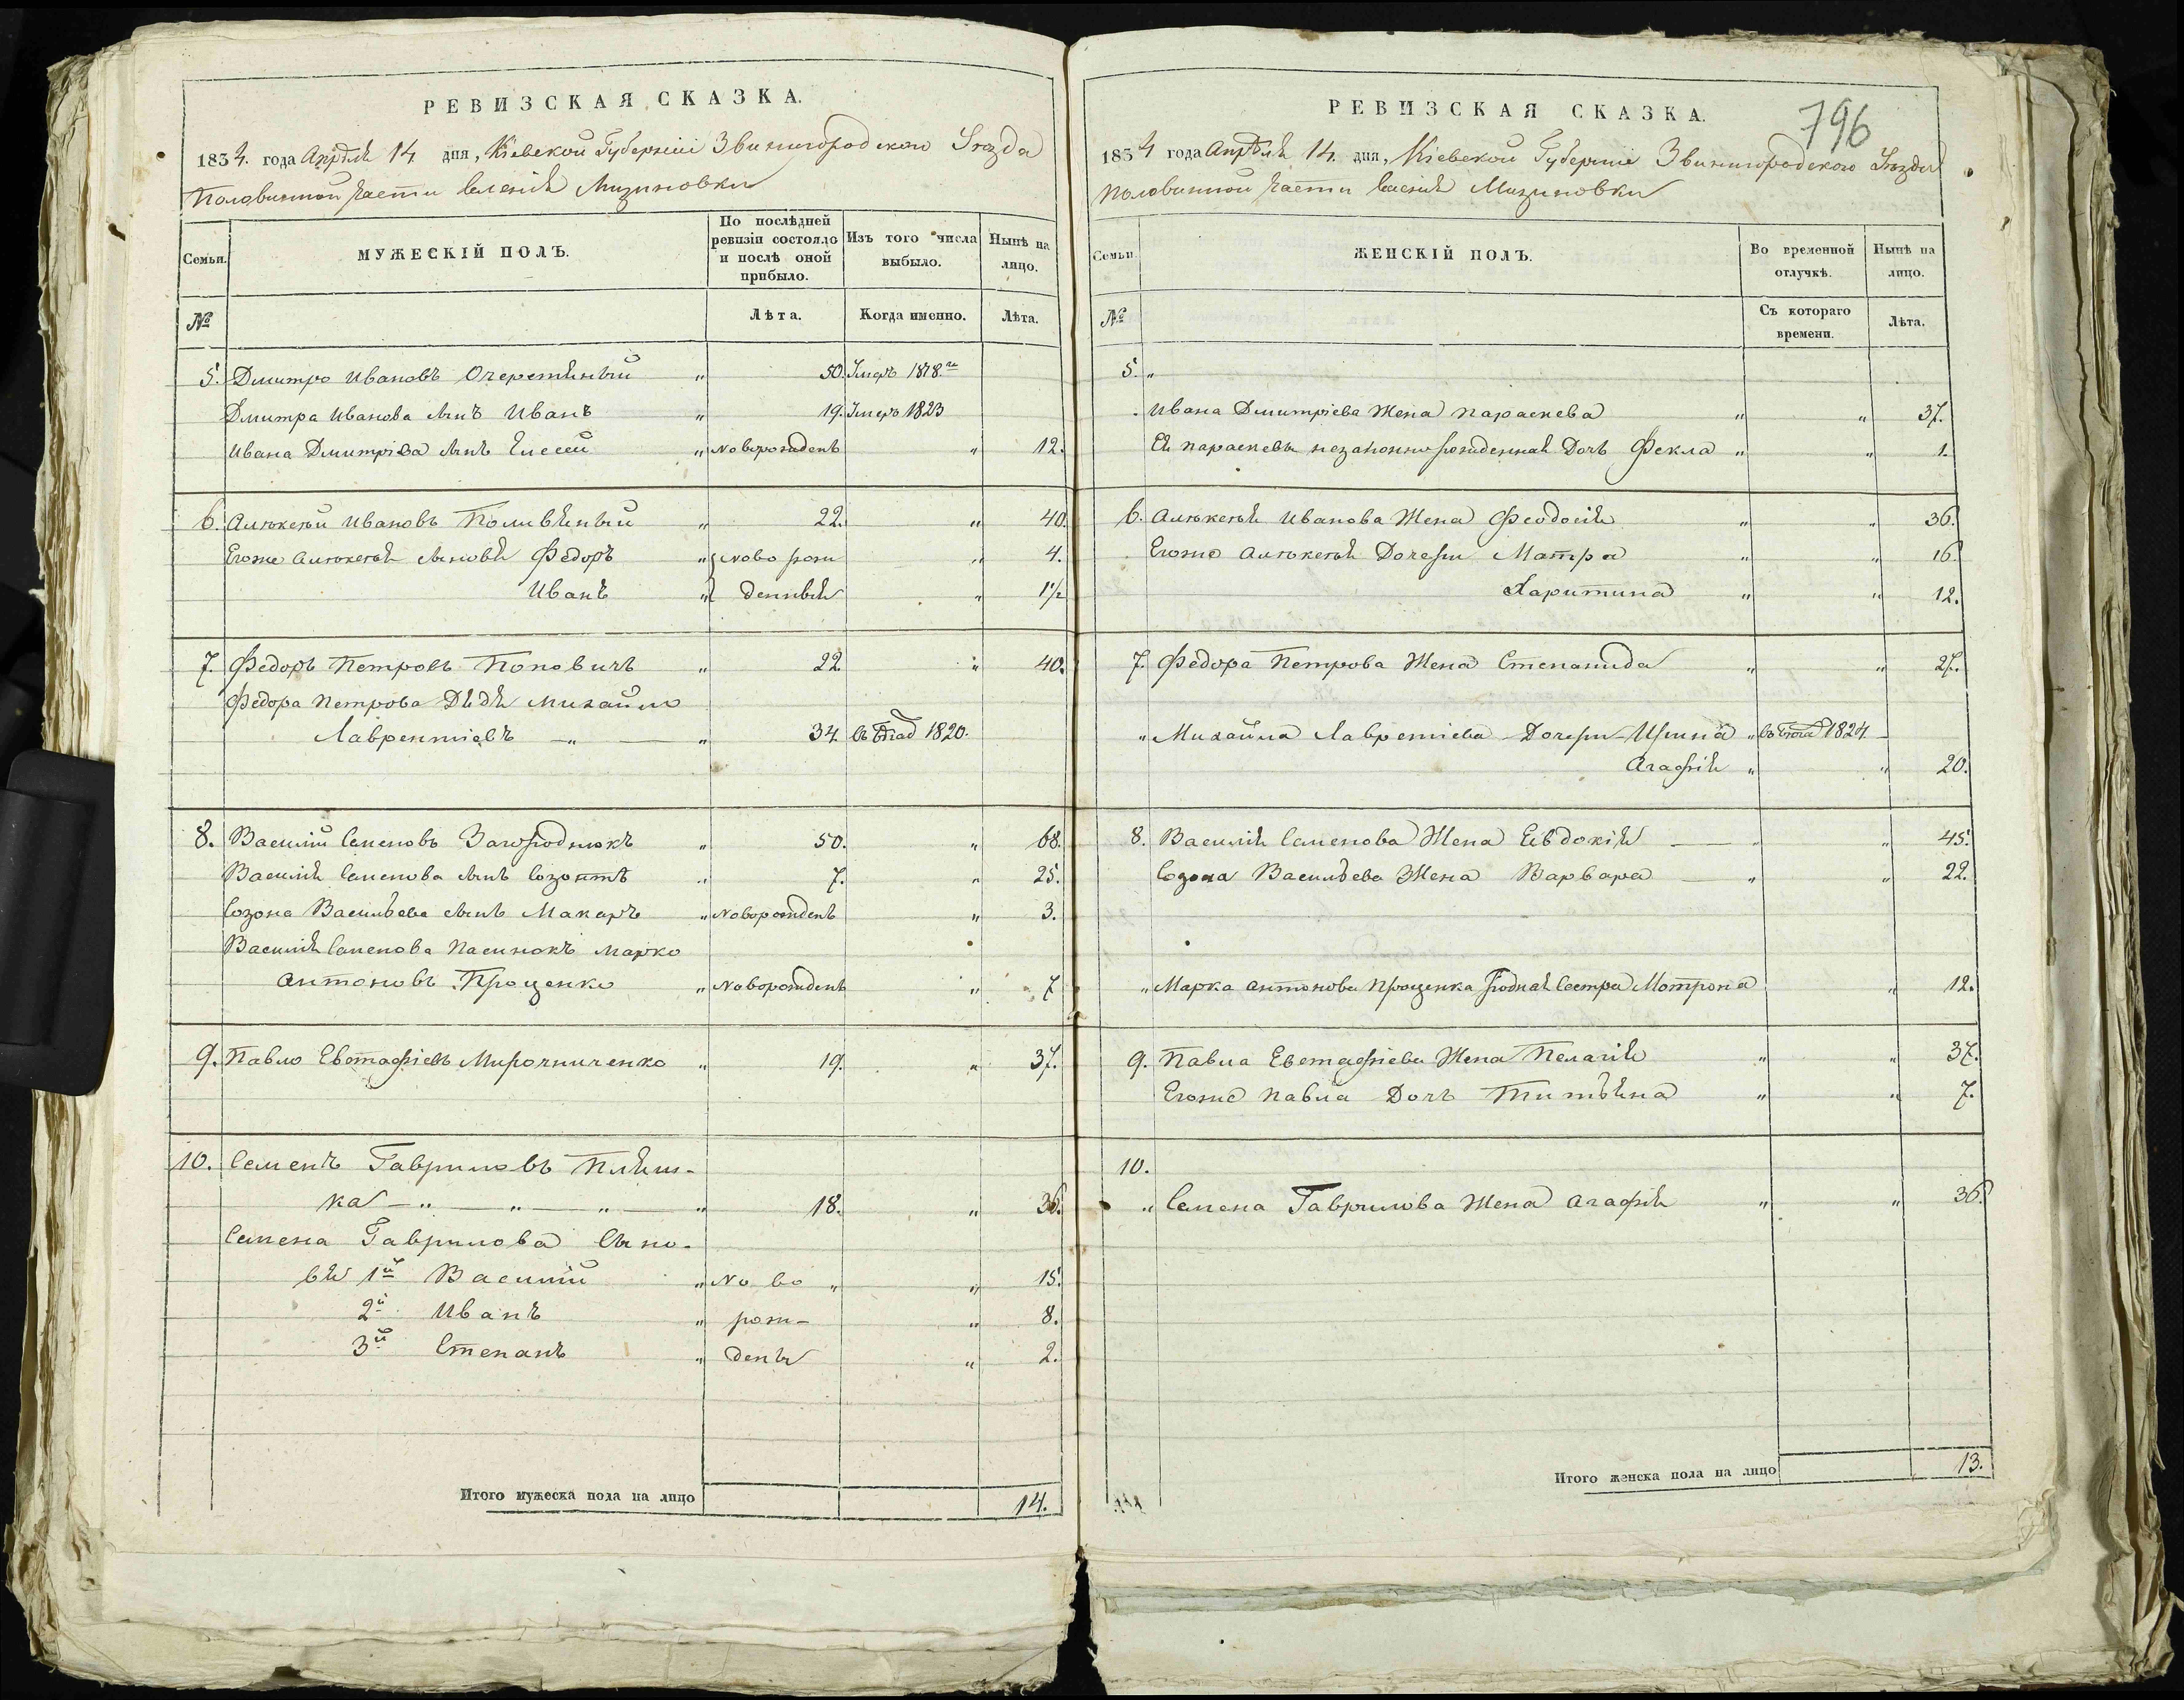 РЕВИЗСКАЯ СКАЗКА.
1834. года Апрѣля 14 дня, Кіевской Губерніи Звинигородского Уѣзда
Половинной Части Селенія Мизиновки
Семьи. МУЖЕСКІЙ ПОЛЪ. По послѣдней ревизіи состояло и послѣ оной прибыло. Изъ того числа выбыло. Нынѣ на лицо.
№ Лѣта. Когда именно. Лѣта.
5. Дмитро Ивановъ Очеретяный " 50. Умеръ 1818.го
Дмитра Иванова сынъ Иванъ " 19. Умеръ 1823
Ивана Дмитріева сынъ Елесей " Новорожденъ " 12.
6. Алѣксѣй Ивановъ Поливяный " 22. " 40.
Егоже Алѣксѣя сыновя Федоръ " Ново рож " 4.
Иванъ " денныя " 1 1/2
7. Федоръ Петровъ Поповичъ " 22. " 40.
Федора Петрова Дядя Михайло
Лаврентіевъ — " — " 34. въ 1820.
8. Василій Семеновъ Загороднюкъ " 50. " 68.
Василія Семенова сынъ Созонтъ " 7. " 25.
Созона Васильева сынъ Макаръ " Новорожденъ " 3.
Василія Семенова Пасинокъ Марко
Антоновъ Проценко " Новорожденъ " 7
9. Павло Евстафіевъ Мирошниченко " 19. " 37.
10. Семенъ Гавриловъ Пляш-
ка — " — " — " — " 18. " 36.
Семена Гаврилова Сыно-
вя 1й Василій " Но во " " 15.
2й Иванъ " рож- " 8.
3й Степанъ " дены " 2.
Итого мужеска пола на лицо 14.
РЕВИЗСКАЯ СКАЗКА.
796
1834 года Апрѣля 14. дня, Кіевской Губерніи Звинигородского Уѣзда
Половинной Части Селенія Мизиновки
Семьи. ЖЕНСКІЙ ПОЛЪ. Во временной отлучкѣ. Нынѣ на лицо.
№ Съ котораго времени. Лѣта.
5. "
Ивана Дмитріева Жена Параскева " " 37.
Ея Параскевы незаконнорожденная Дочъ Фекла " " 1.
6. Алѣксѣя Иванова Жена Феодосія " " 36.
Егоже Алѣксѣя Дочери Матра " " 16.
Харитина " " 12.
7. Федора Петрова Жена Степанида " " 27.
" Михайла Лаврентіева Дочери Ирина " 1824
Агафія " " 20.
8. Василія Семенова Жена Евдокія — " " 45.
Созона Васильева Жена Варвара — " " 22.
" Марка Антонова Проценка родная Сестра Мотрона " 12.
9. Павла Евстафіева Жена Пелагія " " 37.
Егоже Павла Дочъ Титьяна " " 7.
10.
" Семена Гаврилова Жена Агафія " " 36.
Итого женска пола на лицо 13.